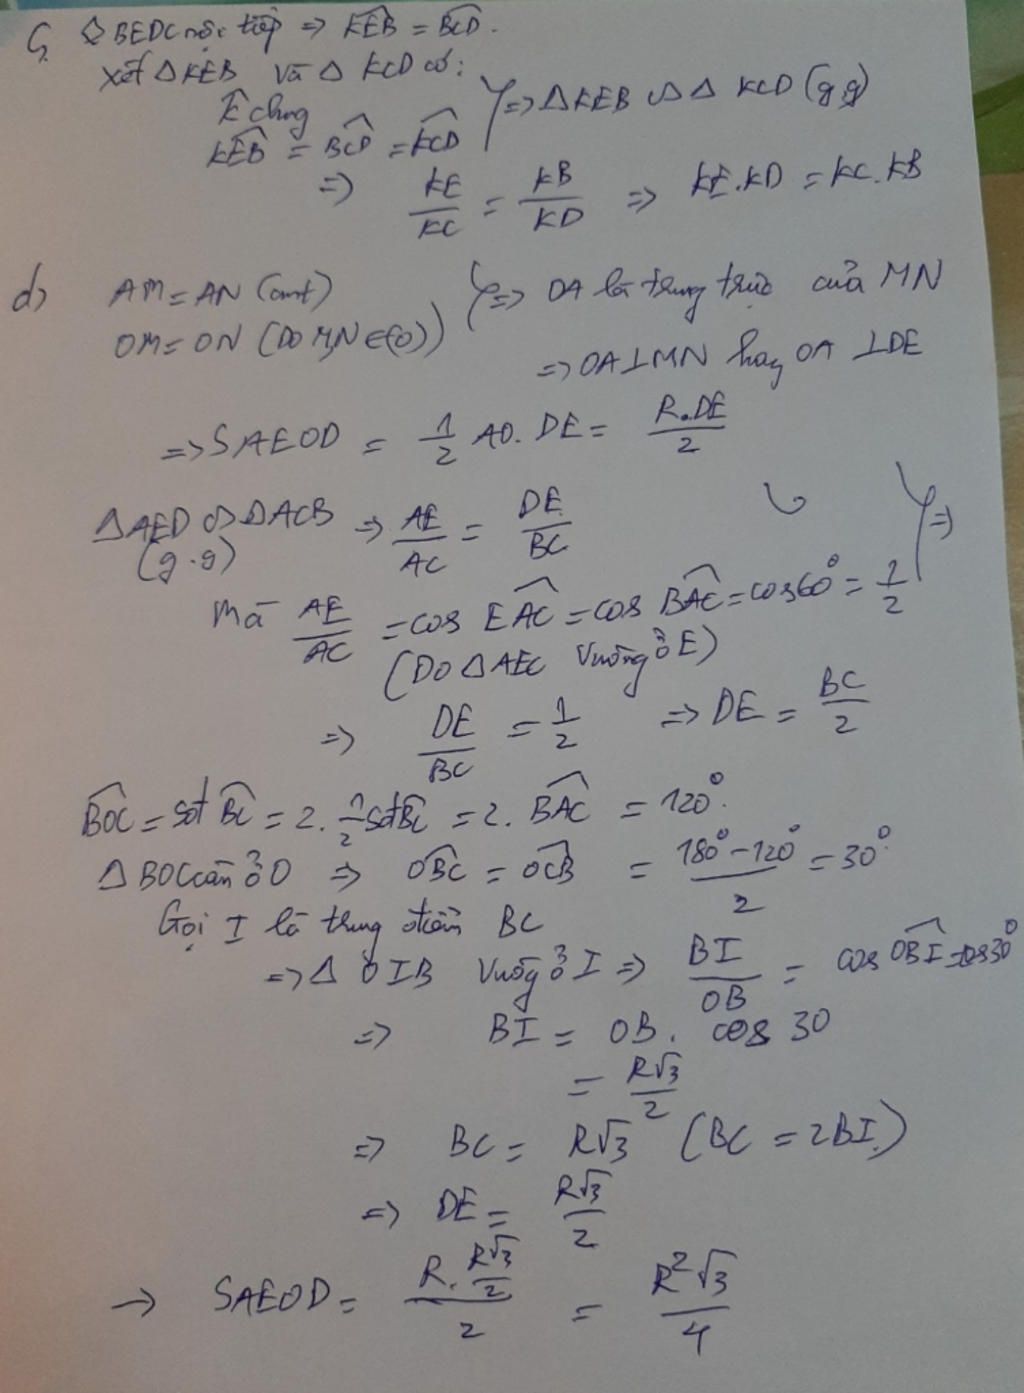 c, ◊ BEDC nội tiếp => \widehat{KEB} = \widehat{BCD}.
Xét ΔKEB và Δ KCD có:
\widehat{K} chung
\widehat{KEB} = \widehat{BCD} = \widehat{KCD} } => ΔKEB ∽ Δ KCD (g.g)
=> KE/KC = KB/KD => KE.KD = KC.KB
d) AM = AN (cmt)
OM = ON (Do M,N ∈ (O)) } => OA là trung trực của MN
=> OA ⊥ MN hay OA ⊥ DE
=> SAEOD = 1/2 AO. DE = R.DE/2
ΔAED ∽ ΔACB => AE/AC = DE/BC
(g.g)
Mà AE/AC = cos \widehat{EAC} = cos \widehat{BAC} = cos60° = 1/2 } =>
(Do ΔAEC vuông ở E)
=> DE/BC = 1/2 => DE = BC/2
\widehat{BOC} = sđ \widehat{BC} = 2. 1/2 sđ \widehat{BC} = 2. \widehat{BAC} = 120°.
Δ BOC cân ở O => \widehat{OBC} = \widehat{OCB} = (180° - 120°)/2 = 30°.
Gọi I là trung điểm BC
=> Δ OIB vuông ở I => BI/OB = cos \widehat{OBI} = cos30°
=> BI = OB. cos 30
= R√3/2
=> BC = R√3 (BC = 2BI)
=> DE = R√3/2
-> SAEOD = (R. R√3/2)/2 = R²√3/4